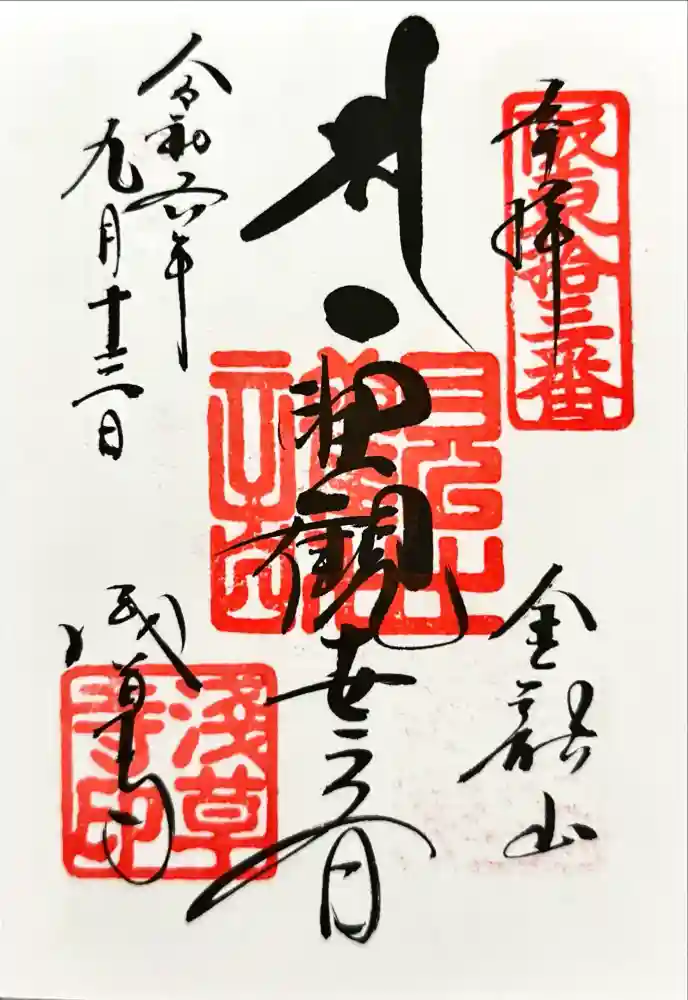 奉拝
坂東拾三番
金龍山
聖観世音
浅草寺
浅草寺印
令和六年
九月十三日